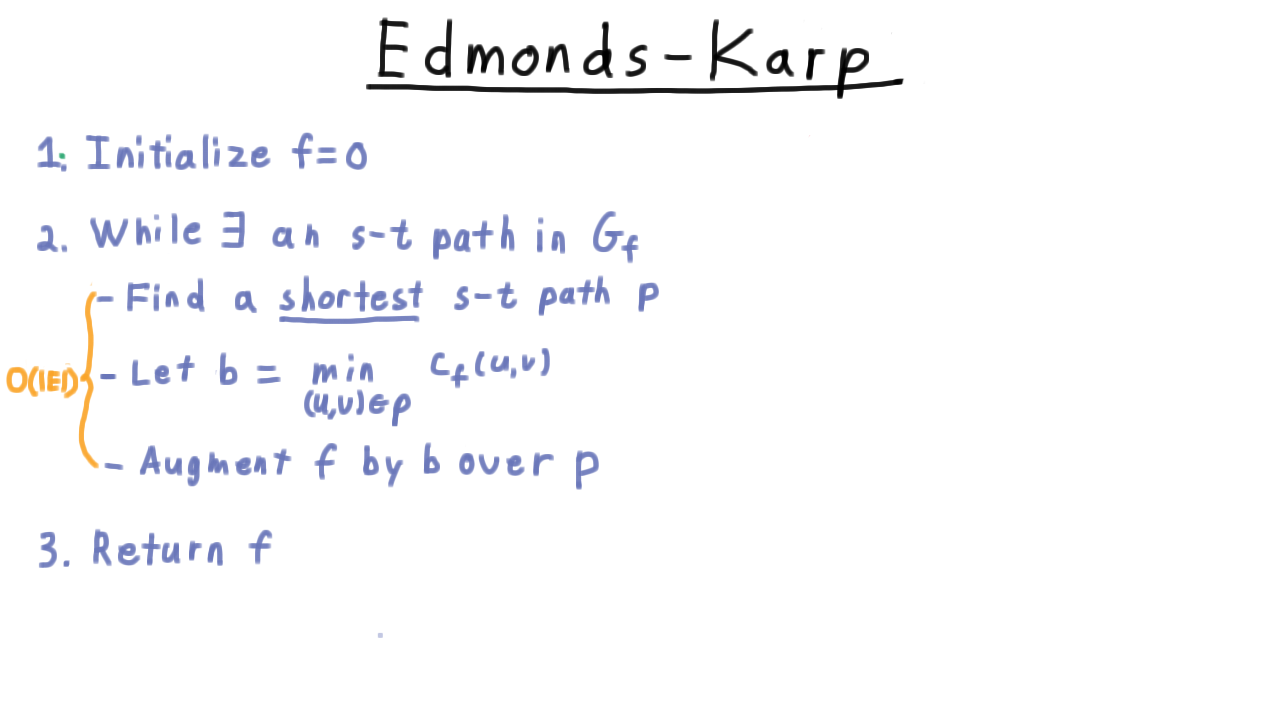 Edmonds-Karp
1. Initialize f=0
2. While ∃ an s-t path in G_f
- Find a shortest s-t path p
O(|E|)
- Let b = min c_f(u,v)
(u,v)∈p
- Augment f by b over p
3. Return f